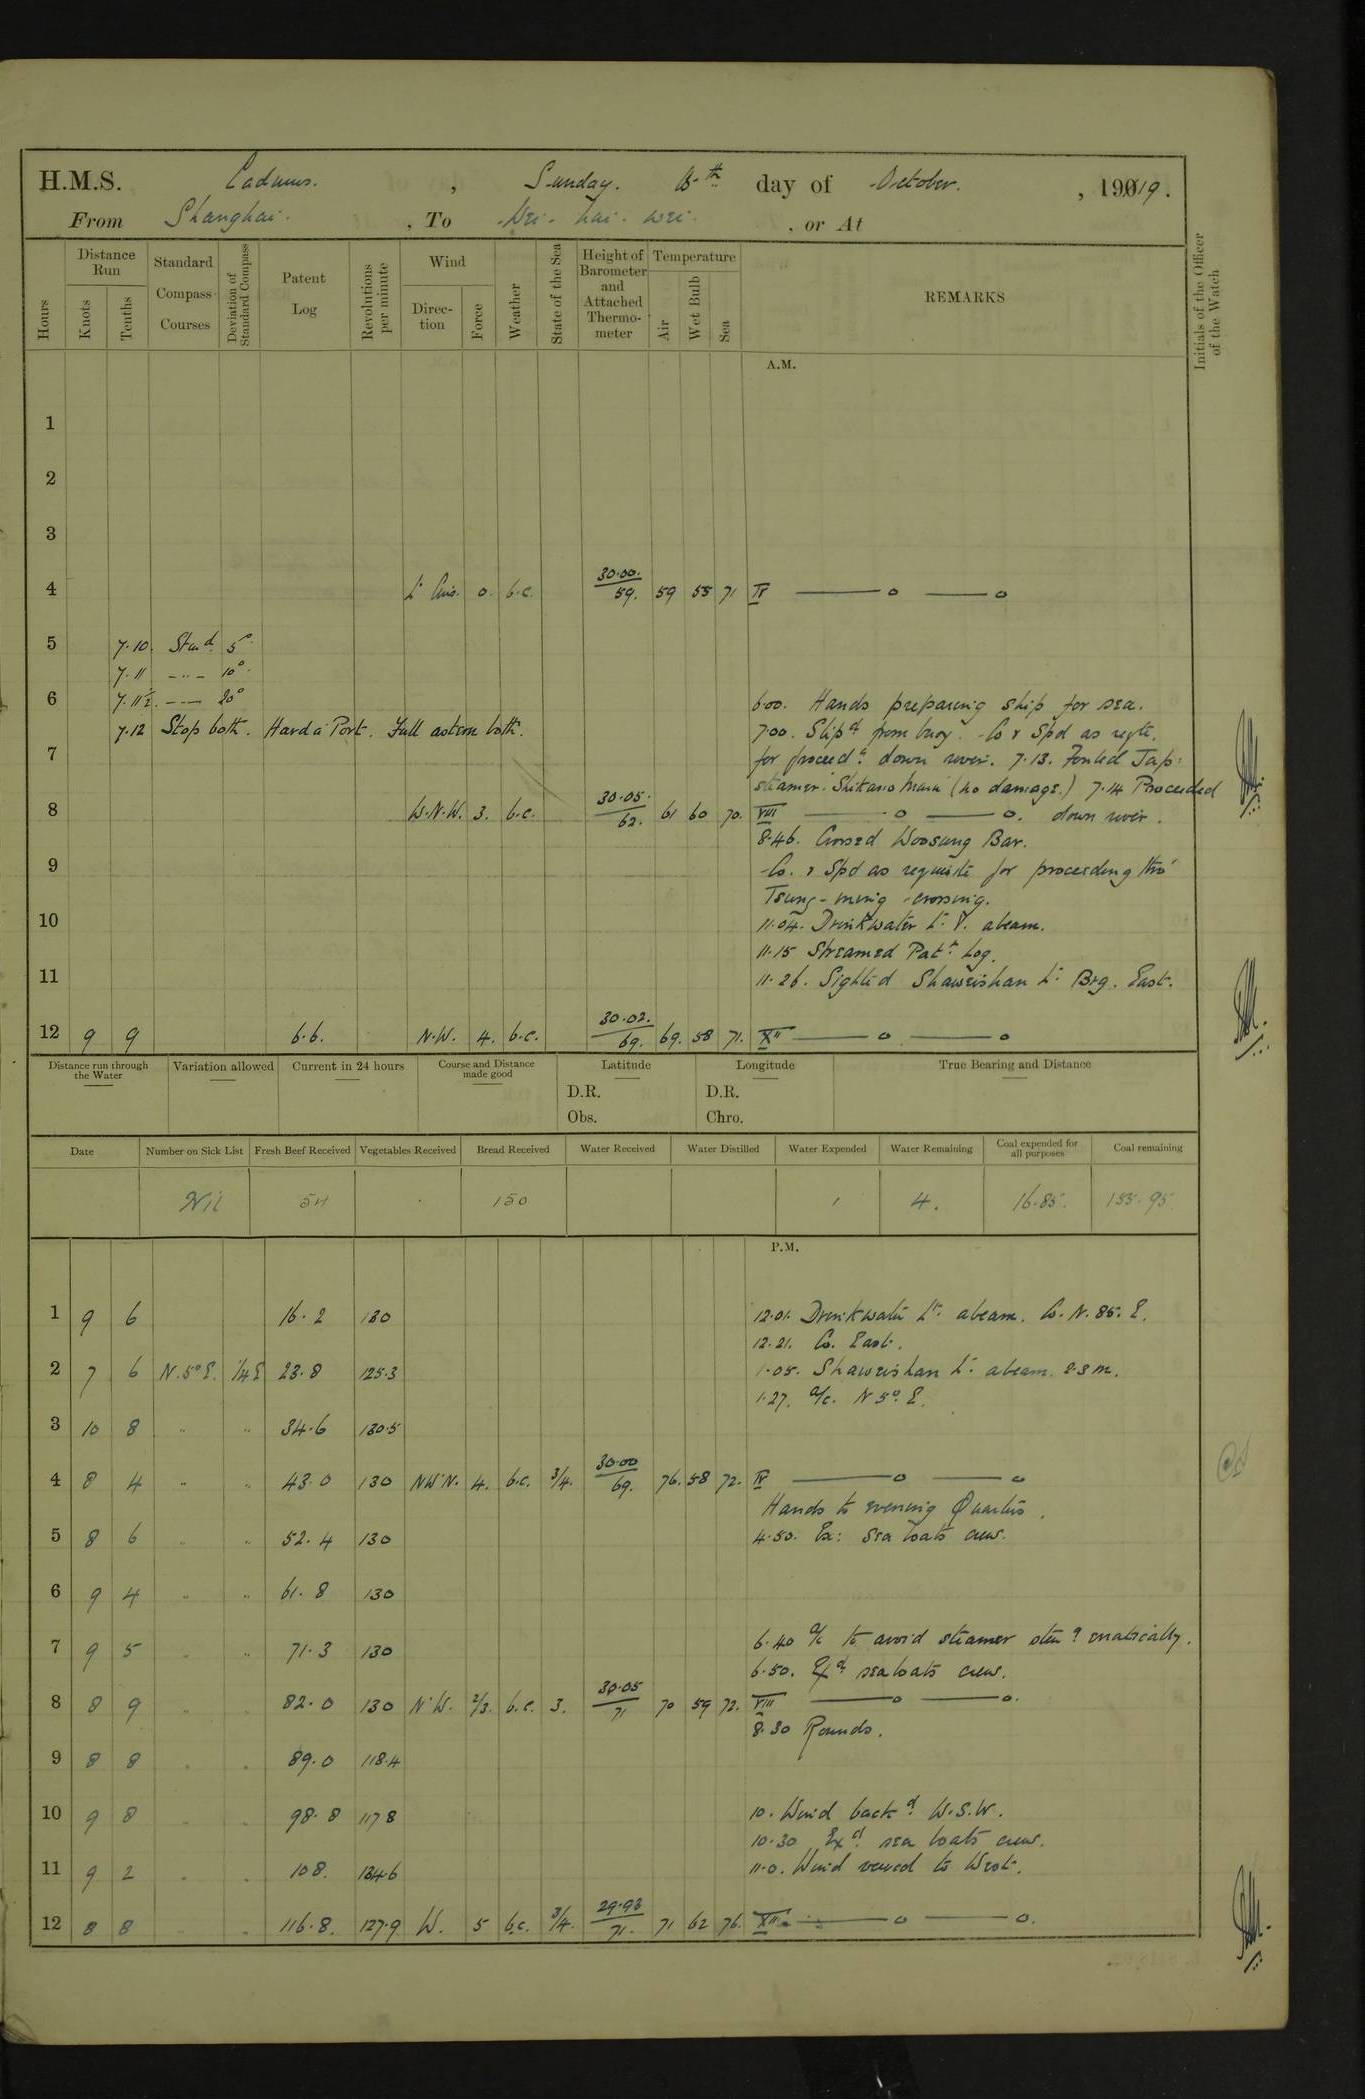 H.M.S. Cadmus. , Sunday. day of October. , 1919.
From Shanghai. , To Wei-hai-wei. , or At
Hours
Distance Run
Knots
Tenths
Standard Compass Courses
Deviation of Standard Compass
Patent Log
Revolutions per minute
Wind
Direction
Force
Weather
State of the Sea
Height of Barometer and Attached Thermometer
Temperature
Air
Wet Bulb
Sea
REMARKS
Initials of the Officer of the Watch
A.M.
1
2
3
4 Lt Airs. 0. b.c. 30.00. 59. 59 55 71 IV
5 7.10. Starbd. 5°
7.11 -"- 10°.
6 7.11½. -- 20° 6.00. Hands preparing ship for sea.
7.12 Stop both. Hard a Port. Full astern both. 7.00. Slipd from buoy. Co & Spd as reqte.
7 for proceedg down river. 7.13. Fouled Jap:
steamer "Shikano Maru" (no damage.) 7.14 Proceeded
8 W.N.W. 3. b.c. 30.05. 62. 61 60 70. VIII down river.
8.46. Crossed Woosung Bar.
9 Co. & Spd as requisite for proceeding thro'
Tsung-ming crossing.
10 11.04. Drinkwater Lt. V. abeam.
11.15 Streamed Patt Log.
11 11.26. Sighted Shaweishan Lt Brg. East.
12 9 9 6.6. N.W. 4. b.c. 30.02. 69. 69. 58 71. XII
Distance run through the Water
Variation allowed
Current in 24 hours
Course and Distance made good
Latitude
D.R.
Obs.
Longitude
D.R.
Chro.
True Bearing and Distance
Date Number on Sick List Fresh Beef Received Vegetables Received Bread Received Water Received Water Distilled Water Expended Water Remaining Coal expended for all purposes Coal remaining
Nil 54 150 1 4. 16.85. 155.95
P.M.
1 9 6 16.2 130 12.01. Drinkwater Lt. abeam. Co. N. 85. E.
12.21. Co. East.
2 7 6 N.5°E. ¼E 23.8 125.3 1.05. Shaweishan Lt abeam. 2.3 m.
1.27. A/c. N 5° E.
3 10 8 " " 34.6 130.5
4 8 4 " " 43.0 130 NW'N. 4. b.c. 3/4. 30.00 69. 76. 58 72. IV
Hands to evening Quarters.
5 8 6 " " 52.4 130 4.50. Ex: sea boats crew.
6 9 4 " " 61.8 130
7 9 5 " " 71.3 130 6.40 A/c to avoid steamer steerg erratically.
6.50. Exd sea boats crew.
8 8 9 " " 82.0 130 N'W. 2/3. b.c. 3. 30.05 71 70 59 72. VIII
8.30 Rounds.
9 8 8 " " 89.0 118.4
10 9 8 " " 98.8 117.8 10. Wind backd W.S.W.
10.30 Exd sea boats crew.
11 9 2 " " 108. 134.6 11.0. Wind veered to West.
12 8 8 " 116.8. 127.9 W. 5 b.c. 3/4. 29.93 71. 71 62 76. XII